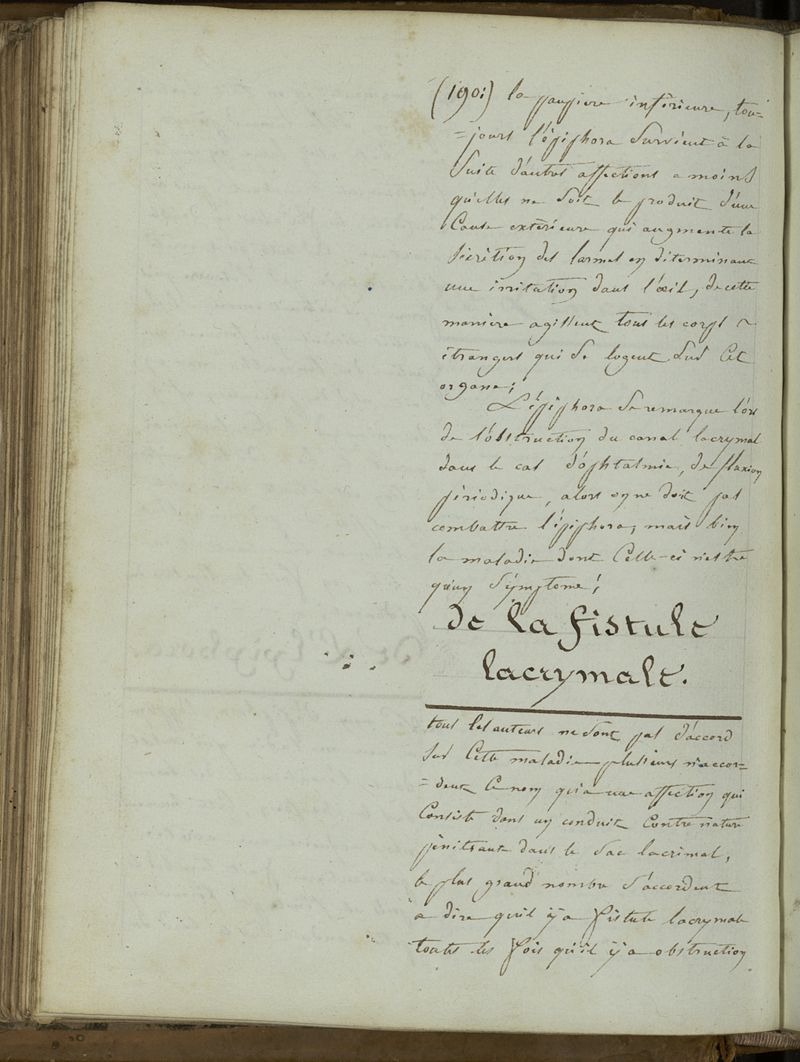 (190:) la paupiere inférieure, tou=
=jours l'épiphora survient à la
suite d'autres affections a moins
qu'elles ne soit le produit d'une
Cause extérieure qui augmente la
sécrétion des larmes en déterminant
une irritation dans l'œil, de cette
manière agissent tous les corps
étrangers qui se logent sur cet
organe;
L'épiphora se remarque lors
de l'obstruction du canal lacrymal
dans le cas d'ophtalmie, de fluxion
périodique, alors on ne doit pas
combattre l'épiphora, mais bien
la maladie dont Celle-ci n'est
qu'un symptome;
de la fistule
lacrymale.
tous les auteurs ne sont pas d'accord
sur Cette maladie plusieurs n'accor=
=dent Ce nom qu'a une affection qui
Consiste dans un conduit Contre nature
pénétrant dans le sac lacrimal,
le plus grand nombre s'accordent
a dire qu'il y a fistule lacrymale
toutes les fois qu'il y a obstruction
De L'Epiphora.